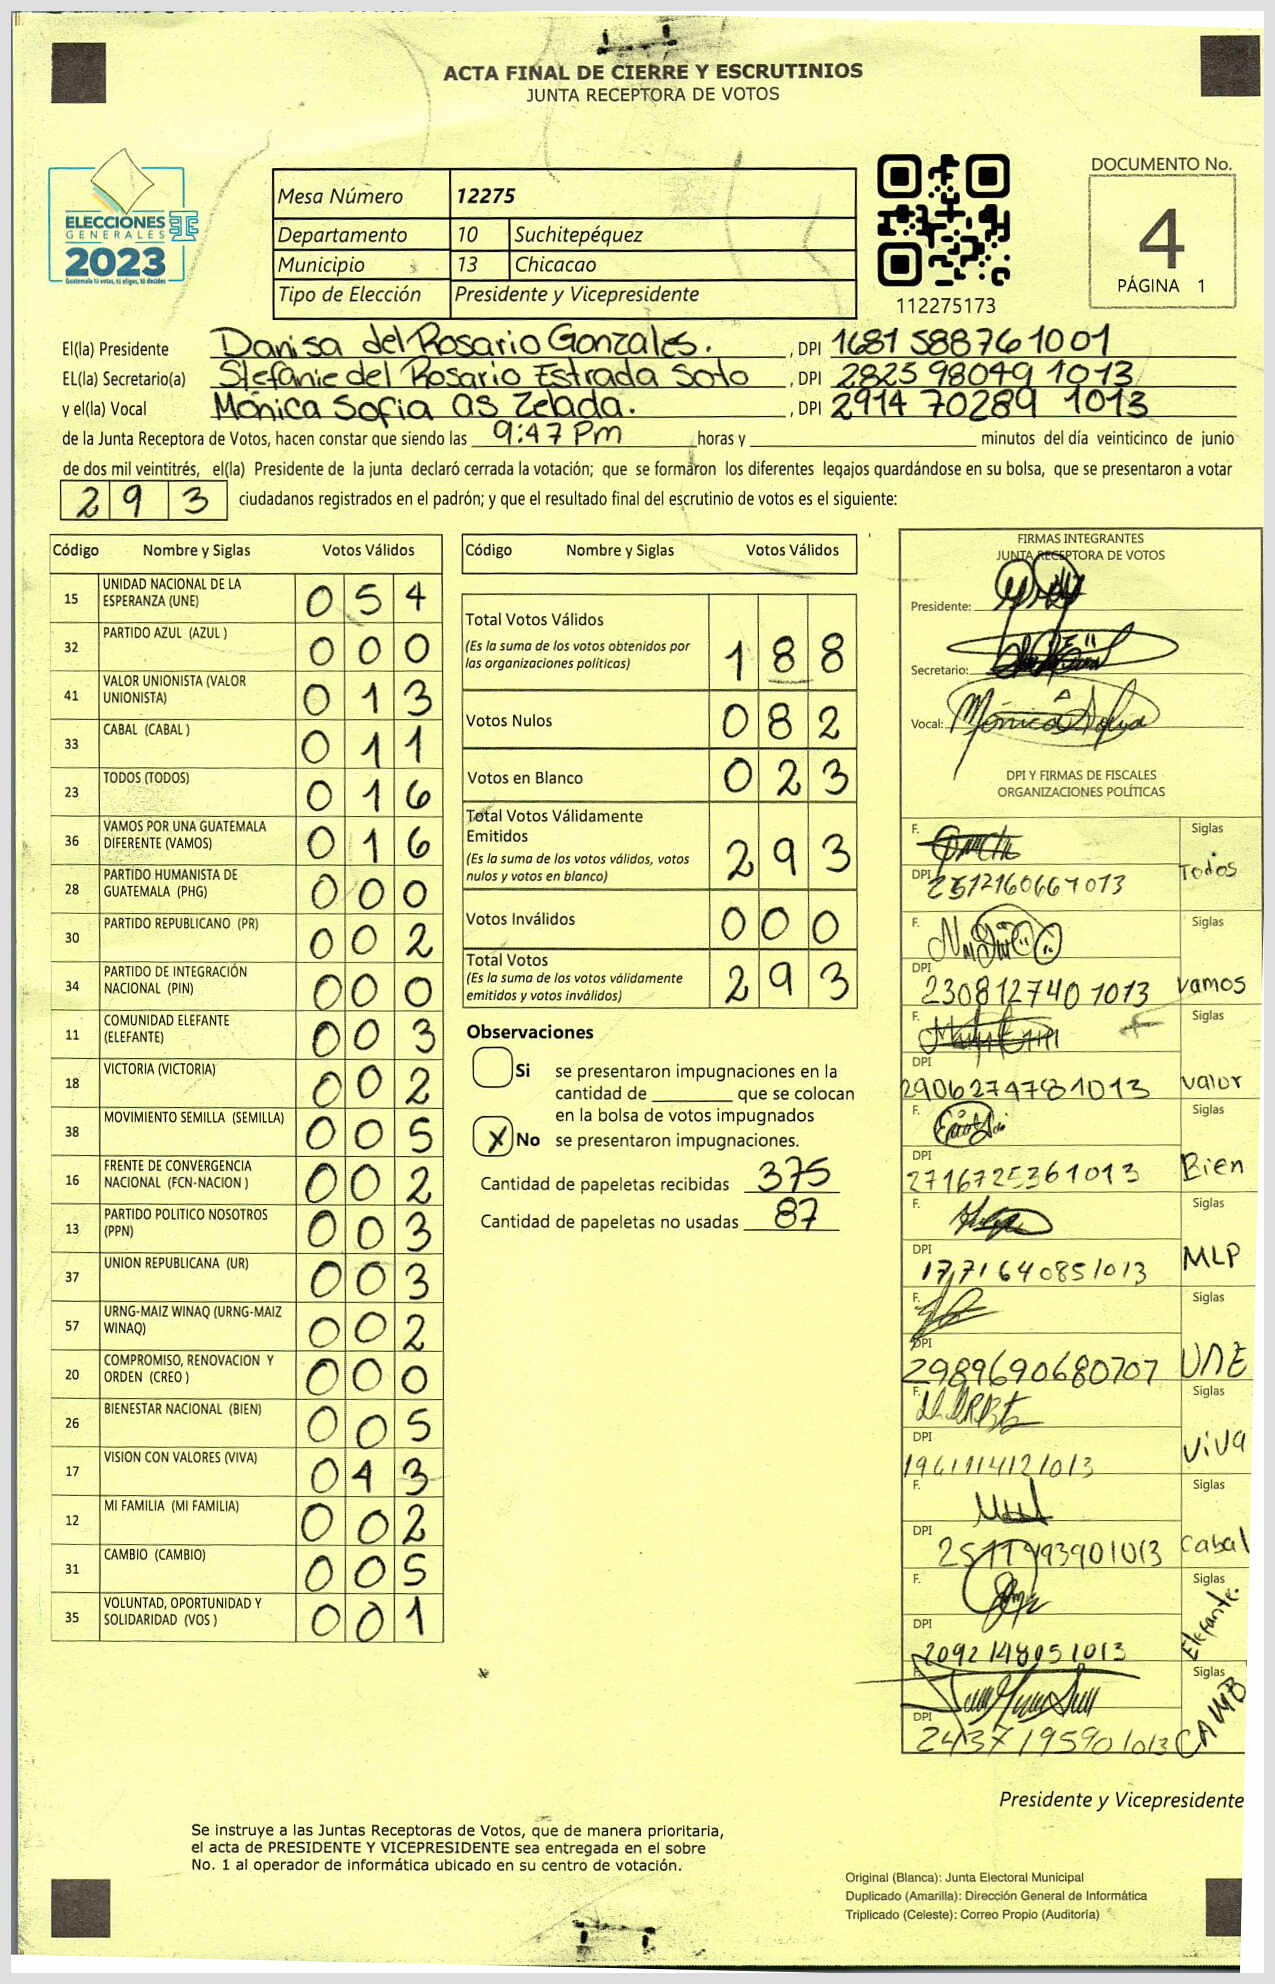 ACTA FINAL DE CIERRE Y ESCRUTINIOS
JUNTA RECEPTORA DE VOTOS
ELECCIONES
GENERALES
2023
Guatemala tú votas, tú eliges, tú decides
Mesa Número 12275
Departamento 10 Suchitepéquez
Municipio 13 Chicacao
Tipo de Elección Presidente y Vicepresidente
112275173
DOCUMENTO No.
4
PÁGINA 1
El(la) Presidente Danisa del Rosario Gonzales. , DPI 1681 58876 1001
EL(la) Secretario(a) Stefanie del Rosario Estrada Soto , DPI 2825 98049 1013
y el(la) Vocal Mónica Sofia as Zelada. , DPI 2914 70289 1013
de la Junta Receptora de Votos, hacen constar que siendo las 9:47 Pm horas y minutos del día veinticinco de junio
de dos mil veintitrés, el(la) Presidente de la junta declaró cerrada la votación; que se formaron los diferentes legajos quardándose en su bolsa, que se presentaron a votar
293 ciudadanos registrados en el padrón; y que el resultado final del escrutinio de votos es el siguiente:
Código Nombre y Siglas Votos Válidos
15 UNIDAD NACIONAL DE LA ESPERANZA (UNE) 054
32 PARTIDO AZUL (AZUL ) 000
41 VALOR UNIONISTA (VALOR UNIONISTA) 013
33 CABAL (CABAL ) 011
23 TODOS (TODOS) 016
36 VAMOS POR UNA GUATEMALA DIFERENTE (VAMOS) 016
28 PARTIDO HUMANISTA DE GUATEMALA (PHG) 000
30 PARTIDO REPUBLICANO (PR) 002
34 PARTIDO DE INTEGRACIÓN NACIONAL (PIN) 000
11 COMUNIDAD ELEFANTE (ELEFANTE) 003
18 VICTORIA (VICTORIA) 002
38 MOVIMIENTO SEMILLA (SEMILLA) 005
16 FRENTE DE CONVERGENCIA NACIONAL (FCN-NACION ) 002
13 PARTIDO POLITICO NOSOTROS (PPN) 003
37 UNION REPUBLICANA (UR) 003
57 URNG-MAIZ WINAQ (URNG-MAIZ WINAQ) 002
20 COMPROMISO, RENOVACION Y ORDEN (CREO ) 000
26 BIENESTAR NACIONAL (BIEN) 005
17 VISION CON VALORES (VIVA) 043
12 MI FAMILIA (MI FAMILIA) 002
31 CAMBIO (CAMBIO) 005
35 VOLUNTAD, OPORTUNIDAD Y SOLIDARIDAD (VOS ) 001
Código Nombre y Siglas Votos Válidos
Total Votos Válidos 188
(Es la suma de los votos obtenidos por
las organizaciones políticas)
Votos Nulos 082
Votos en Blanco 023
Total Votos Válidamente
Emitidos 293
(Es la suma de los votos válidos, votos
nulos y votos en blanco)
Votos Inválidos 000
Total Votos 293
(Es la suma de los votos válidamente
emitidos y votos inválidos)
Observaciones
Si se presentaron impugnaciones en la
cantidad de que se colocan
en la bolsa de votos impugnados
X No se presentaron impugnaciones.
Cantidad de papeletas recibidas 375
Cantidad de papeletas no usadas 87
FIRMAS INTEGRANTES
JUNTA RECEPTORA DE VOTOS
Presidente:
Secretario:
Vocal: Mónica
DPI Y FIRMAS DE FISCALES
ORGANIZACIONES POLÍTICAS
F. Siglas
DPI Todos
F. Siglas
DPI 230812740 1013 Vamos
F. Siglas
DPI 2906274781013 valor
F. Siglas
DPI 2716725361013 Bien
F. Siglas
DPI 1771640851013 MLP
F. Siglas
DPI 2989690680707 UNE
F. Siglas
DPI VIVA
F. Siglas
DPI Cabal
F. Siglas
DPI Elefante.
F. Siglas
DPI 2437195901013 CAMB
Presidente y Vicepresidente
Se instruye a las Juntas Receptoras de Votos, que de manera prioritaria,
el acta de PRESIDENTE Y VICEPRESIDENTE sea entregada en el sobre
No. 1 al operador de informática ubicado en su centro de votación.
Original (Blanca): Junta Electoral Municipal
Duplicado (Amarilla): Dirección General de Informática
Triplicado (Celeste): Correo Propio (Auditoría)